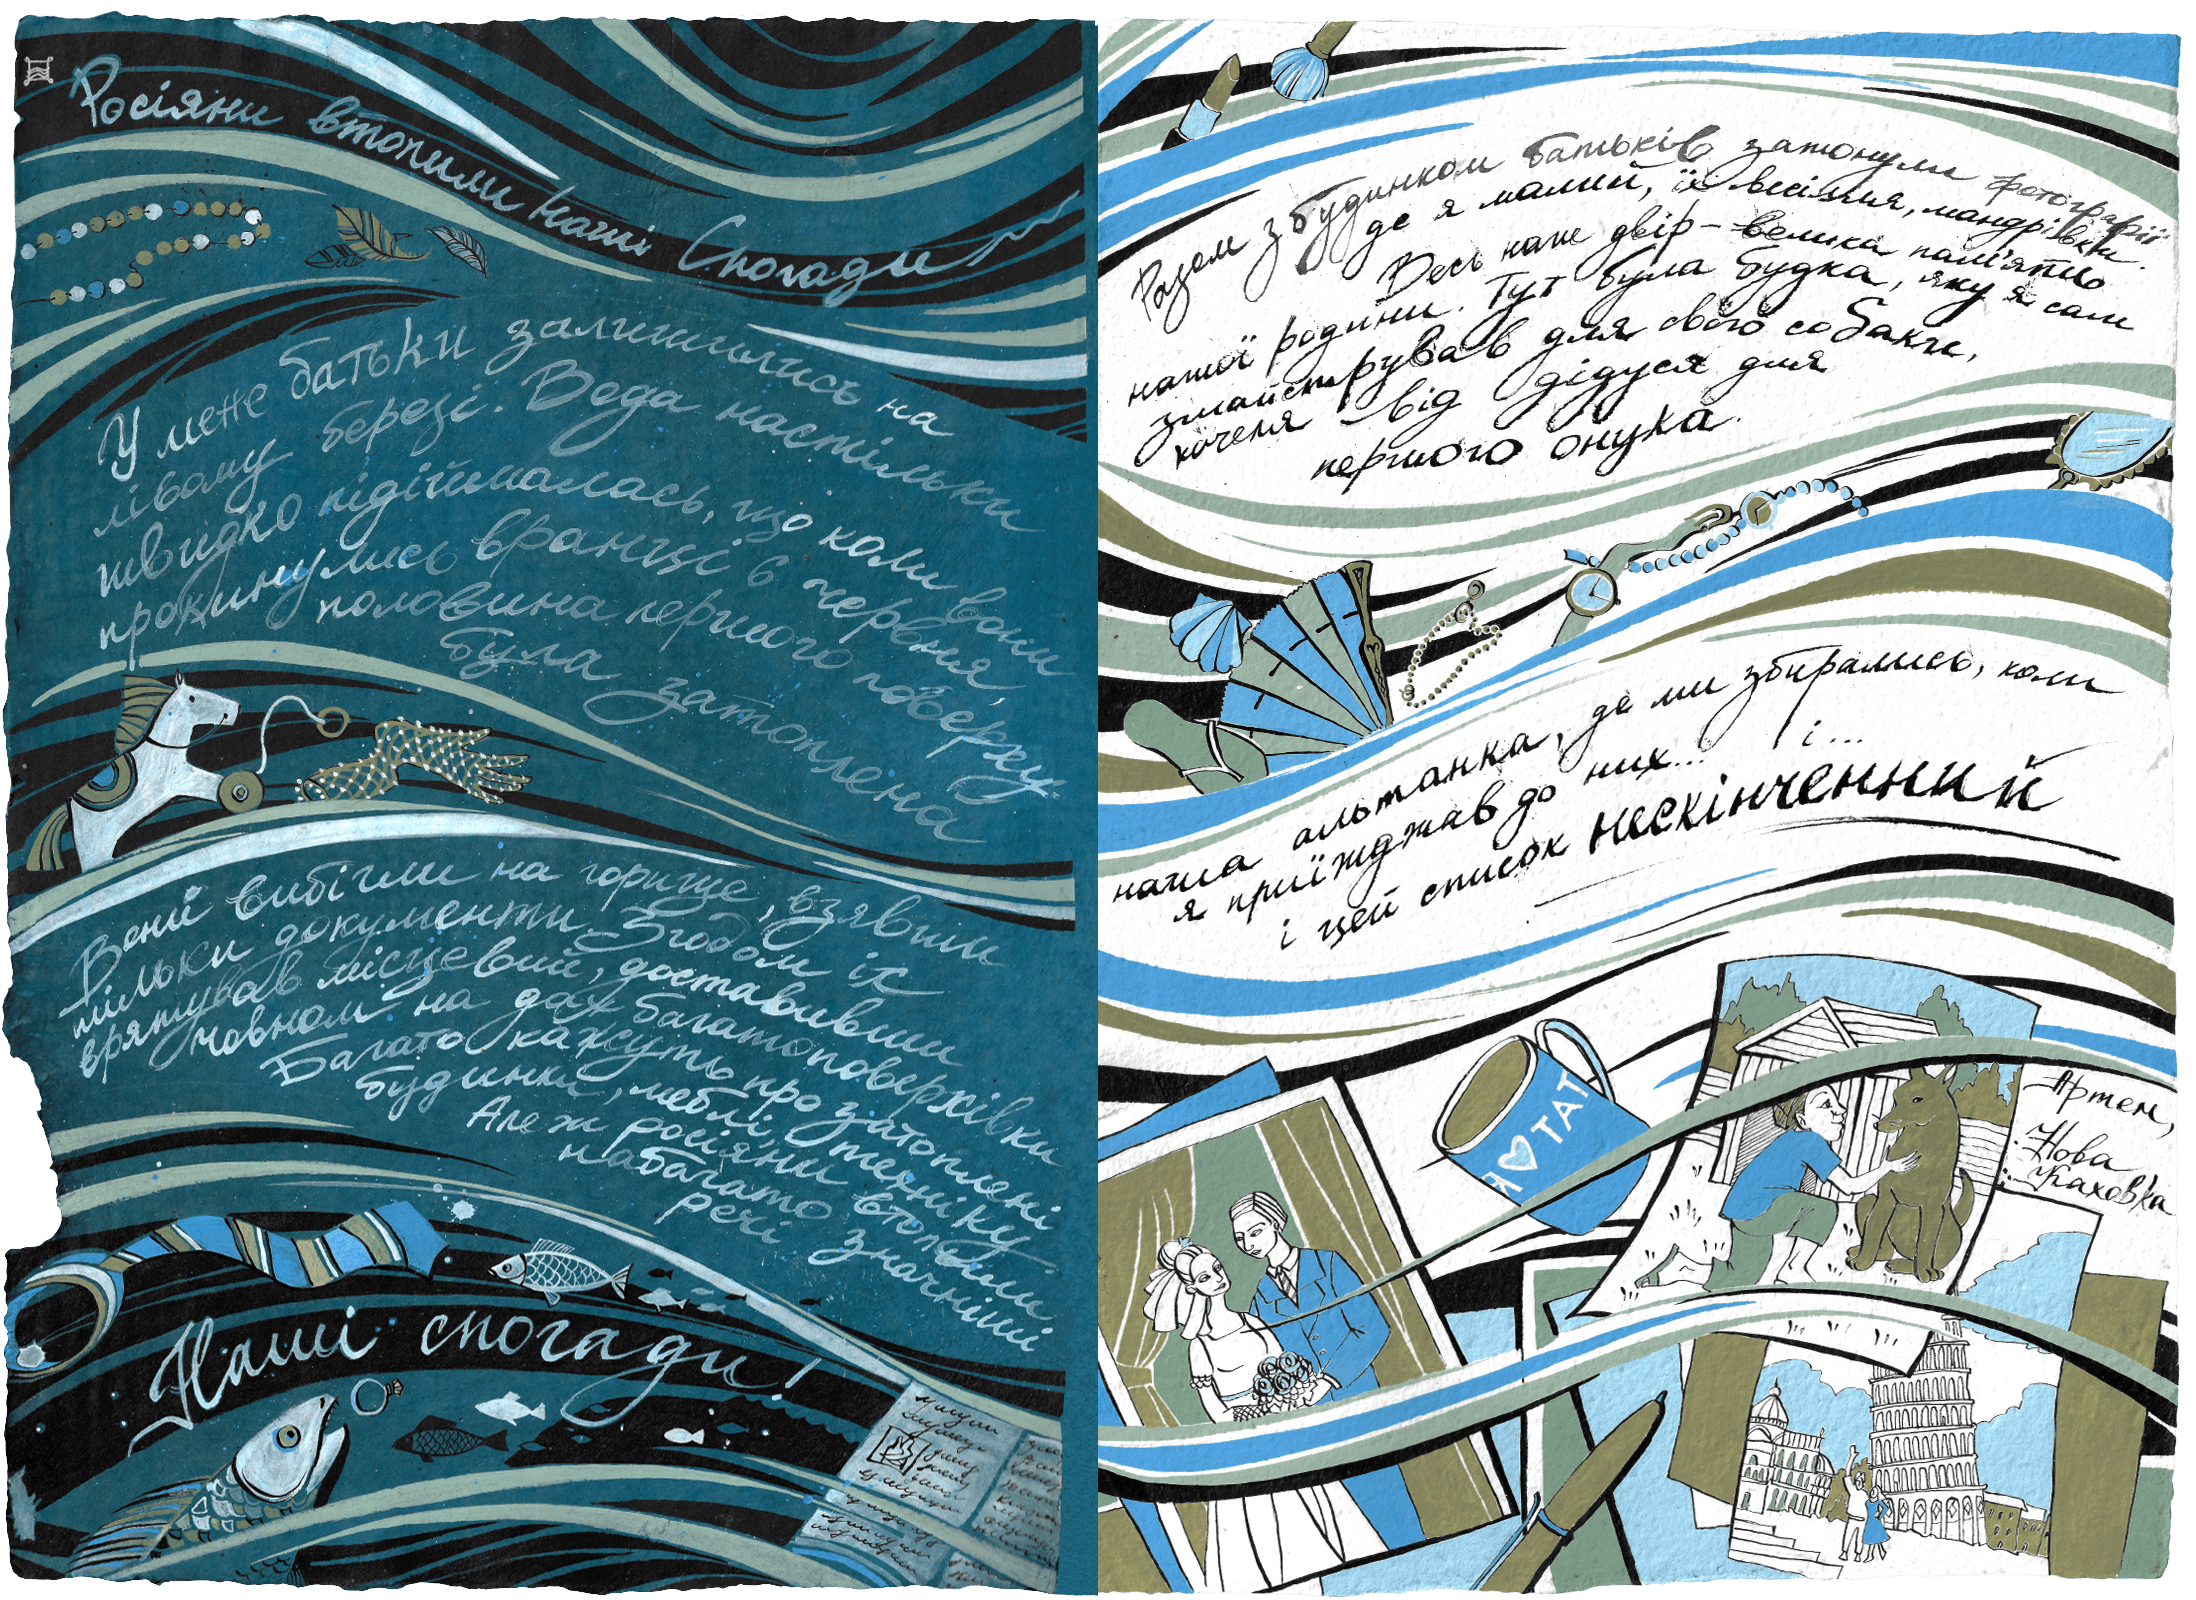 Росіяни втопили наші спогади
У мене батьки залишились на
лівому березі. Вода настільки
швидко підіймалась, що коли вони
прокинулись вранці 6 червня,
половина першого поверху
була затоплена
Вони вибігли на горище, взявши
тільки документи. Згодом їх
врятував місцевий, доставивши
човном на дах багатоповерхівки
Багато кажуть про затоплені
будинки, меблі, техніку
Але ж росіяни втопили
набагато значніші
речі
Наші спогади!
Разом з будинком батьків затонули фотографії
де я малий, їх весілля, мандрівки.
Весь наш двір – велика пам'ять
нашої родини. Тут була будка, яку я сам
змайстрував для своєї собаки,
качеля від дідуся для
першого онука.
наша альтанка, де ми збирались, коли
я приїжджав до них... і...
і цей список нескінченний
Я ТАТ
Артем,
Нова
Каховка